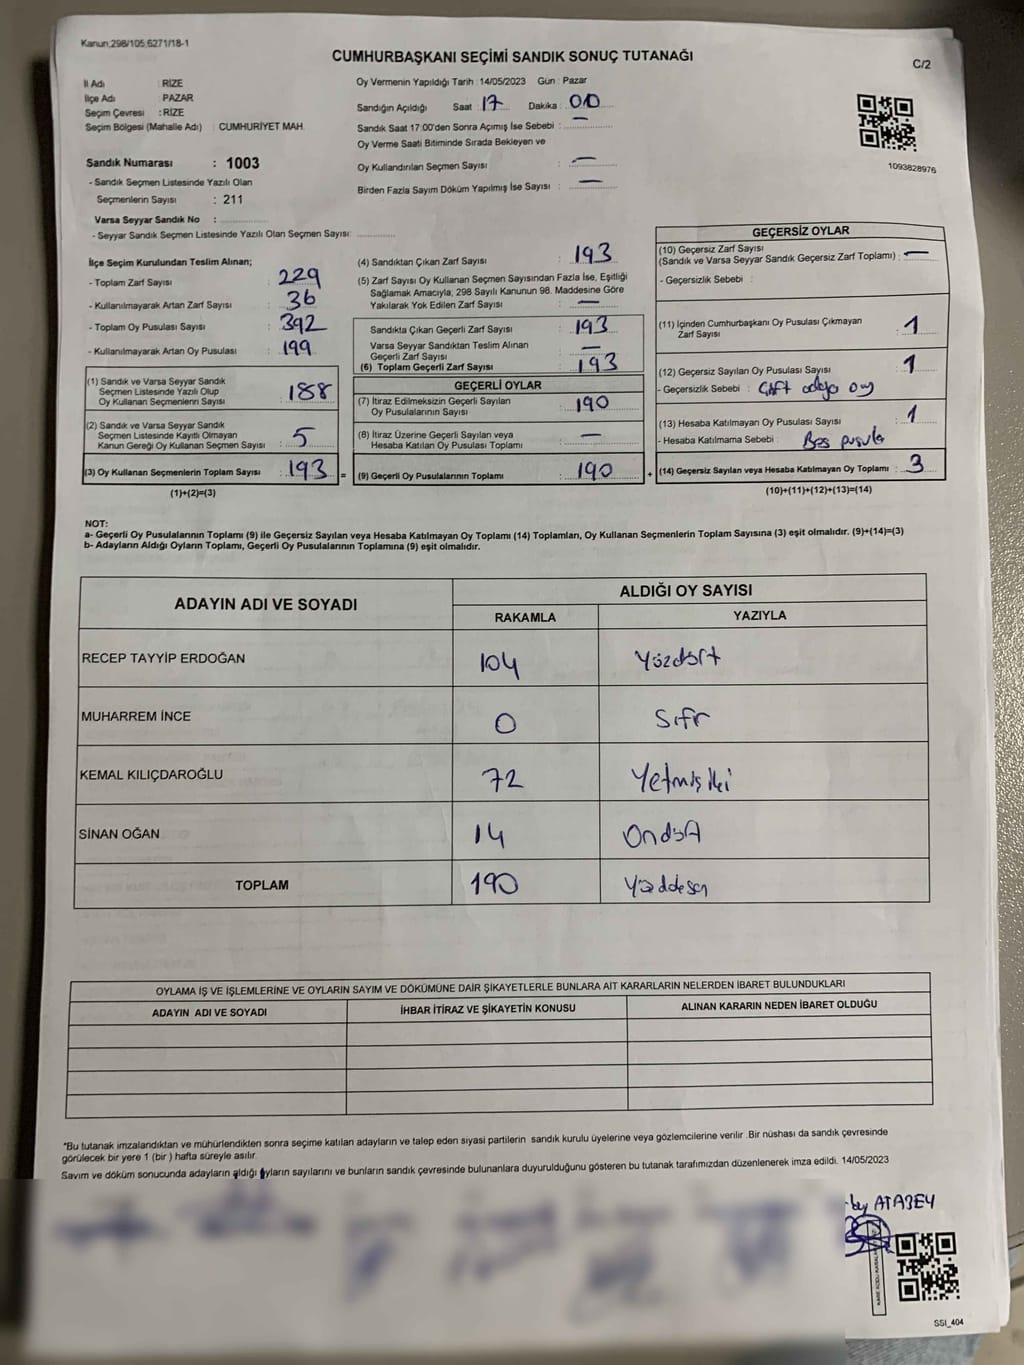 Kanun,298/105,6271/18-1
CUMHURBAŞKANI SEÇİMİ SANDIK SONUÇ TUTANAĞI
C/2
İl Adı : RİZE
İlçe Adı : PAZAR
Seçim Çevresi : RİZE
Seçim Bölgesi (Mahalle Adı) : CUMHURİYET MAH.
Sandık Numarası : 1003
- Sandık Seçmen Listesinde Yazılı Olan
Seçmenlerin Sayısı : 211
Varsa Seyyar Sandık No :
- Seyyar Sandık Seçmen Listesinde Yazılı Olan Seçmen Sayısı:
Oy Vermenin Yapıldığı Tarih : 14/05/2023 Gün : Pazar
Sandığın Açıldığı Saat : 17 Dakika : 00
Sandık Saat 17:00'den Sonra Açımış İse Sebebi : —
Oy Verme Saati Bitiminde Sırada Bekleyen ve
Oy Kullandırılan Seçmen Sayısı : —
Birden Fazla Sayım Döküm Yapılmış İse Sayısı : —
1093828976
İlçe Seçim Kurulundan Teslim Alınan;
- Toplam Zarf Sayısı : 229
- Kullanılmayarak Artan Zarf Sayısı : 36
- Toplam Oy Pusulası Sayısı : 392
- Kullanılmayarak Artan Oy Pusulası : 199
(1) Sandık ve Varsa Seyyar Sandık
Seçmen Listesinde Yazılı Olup
Oy Kullanan Seçmenlerin Sayısı : 188
(2) Sandık ve Varsa Seyyar Sandık
Seçmen Listesinde Kayıtlı Olmayan
Kanun Gereği Oy Kullanan Seçmen Sayısı : 5
(3) Oy Kullanan Seçmenlerin Toplam Sayısı : 193 =
(1)+(2)=(3)
(4) Sandıktan Çıkan Zarf Sayısı : 193
(5) Zarf Sayısı Oy Kullanan Seçmen Sayısından Fazla İse, Eşitliği
Sağlamak Amacıyla, 298 Sayılı Kanunun 98. Maddesine Göre
Yakılarak Yok Edilen Zarf Sayısı : —
Sandıkta Çıkan Geçerli Zarf Sayısı : 193
Varsa Seyyar Sandıktan Teslim Alınan
Geçerli Zarf Sayısı : —
(6) Toplam Geçerli Zarf Sayısı : 193
GEÇERLİ OYLAR
(7) İtiraz Edilmeksizin Geçerli Sayılan
Oy Pusulalarının Sayısı : 190
(8) İtiraz Üzerine Geçerli Sayılan veya
Hesaba Katılan Oy Pusulası Toplamı : —
(9) Geçerli Oy Pusulalarının Toplamı : 190 +
GEÇERSİZ OYLAR
(10) Geçersiz Zarf Sayısı
(Sandık ve Varsa Seyyar Sandık Geçersiz Zarf Toplamı) : —
- Geçersizlik Sebebi :
(11) İçinden Cumhurbaşkanı Oy Pusulası Çıkmayan
Zarf Sayısı : 1
(12) Geçersiz Sayılan Oy Pusulası Sayısı : 1
- Geçersizlik Sebebi : Çift adaya oy
(13) Hesaba Katılmayan Oy Pusulası Sayısı : 1
- Hesaba Katılmama Sebebi : Boş pusula
(14) Geçersiz Sayılan veya Hesaba Katılmayan Oy Toplamı : 3
(10)+(11)+(12)+(13)=(14)
NOT:
a- Geçerli Oy Pusulalarının Toplamı (9) ile Geçersiz Sayılan veya Hesaba Katılmayan Oy Toplamı (14) Toplamları, Oy Kullanan Seçmenlerin Toplam Sayısına (3) eşit olmalıdır. (9)+(14)=(3)
b- Adayların Aldığı Oyların Toplamı, Geçerli Oy Pusulalarının Toplamına (9) eşit olmalıdır.
ADAYIN ADI VE SOYADI
ALDIĞI OY SAYISI
RAKAMLA YAZIYLA
RECEP TAYYİP ERDOĞAN 104 Yüzdört
MUHARREM İNCE 0 Sıfır
KEMAL KILIÇDAROĞLU 72 Yetmişiki
SİNAN OĞAN 14 Ondört
TOPLAM 190
OYLAMA İŞ VE İŞLEMLERİNE VE OYLARIN SAYIM VE DÖKÜMÜNE DAİR ŞİKAYETLERLE BUNLARA AİT KARARLARIN NELERDEN İBARET BULUNDUKLARI
ADAYIN ADI VE SOYADI İHBAR İTİRAZ VE ŞİKAYETİN KONUSU ALINAN KARARIN NEDEN İBARET OLDUĞU
*Bu tutanak imzalandıktan ve mühürlendikten sonra seçime katılan adayların ve talep eden siyasi partilerin sandık kurulu üyelerine veya gözlemcilerine verilir .Bir nüshası da sandık çevresinde
görülecek bir yere 1 (bir ) hafta süreyle asılır.
Sayım ve döküm sonucunda adayların aldığı oyların sayılarını ve bunların sandık çevresinde bulunanlara duyurulduğunu gösteren bu tutanak tarafımızdan düzenlenerek imza edildi. 14/05/2023
ATABEY
SSI_404